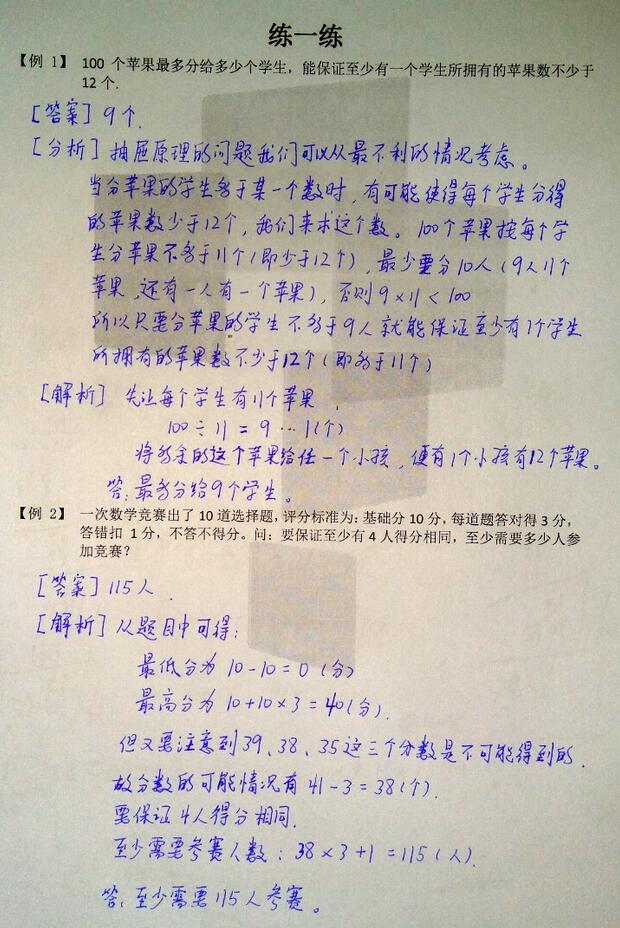 练一练
【例 1】 100 个苹果最多分给多少个学生，能保证至少有一个学生所拥有的苹果数不少于
12 个.
[答案] 9个.
[分析] 抽屉原理的问题我们可以从最不利的情况考虑。
当分苹果的学生多于某一个数时，有可能使得每个学生分得
的苹果数少于12个，我们来求这个数。100个苹果按每个学
生分苹果不多于11个(即少于12个)，最少要分10人(9人11个
苹果，还有一人有一个苹果)，否则9×11<100
所以只要分苹果的学生不多于9人就能保证至少有1个学生
所拥有的苹果数不少于12个(即多于11个)
[解析] 先让每个学生有11个苹果，
100÷11=9…1(个)
将多余的这个苹果给任一个小孩，便有1个小孩有12个苹果。
答:最多分给9个学生。
【例 2】 一次数学竞赛出了 10 道选择题，评分标准为：基础分 10 分，每道题答对得 3 分，
答错扣 1 分，不答不得分。问：要保证至少有 4 人得分相同，至少需要多少人参
加竞赛？
[答案] 115人.
[解析] 从题目中可得:
最低分为 10-10=0(分)
最高分为 10+10×3=40(分).
但又要注意到39、38、35这三个分数是不可能得到的.
故分数的可能情况有 41-3=38(个).
要保证4人得分相同.
至少需要参赛人数：38×3+1=115(人).
答:至少需要115人参赛。